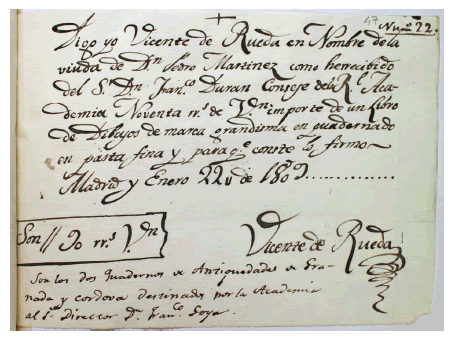 47 Num.º 22.
Digo yo Vicente de Rueda en Nombre de la
viuda de Dn. Pedro Martinez como he rrecibido
del Sr. Dn. Franco. Duran Conserje de la Rl. Aca-
demia Noventa rrs. de Vn. importe de un Libro
de Dibujos de marca grandisima en quadernado
en pasta fina y para qe. conste lo firmo
Madrid y Enero 22 de 1809..............
Son // 90 rrs. Vn
Vicente de Rueda
Son los dos Quadernos de Antiguedades de Gra-
nada y cordova destinados por la Academia
al Sr. Director Dn. Franco. Goya.